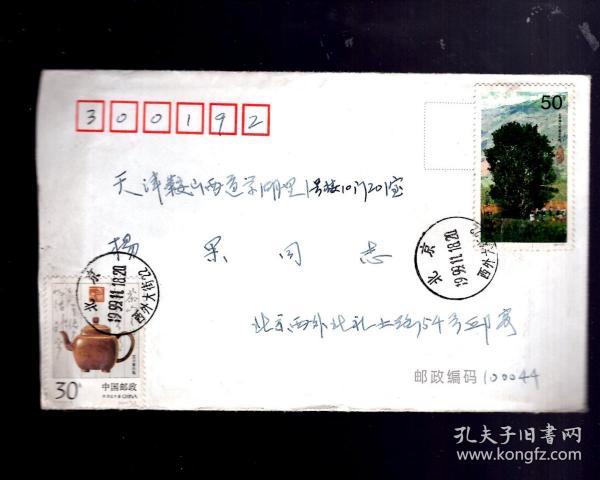 300192
50分
天津鞍山西道荣明里1号楼10门201室
杨果同志
北京
1999.11.18.20
西外大街(2)
北京
1999.11.18.20
西外大街(2)
北京西外北礼士路154号邱寄
30分
中国邮政
CHINA
邮政编码 100044
孔夫子旧书网
www.kongfz.com